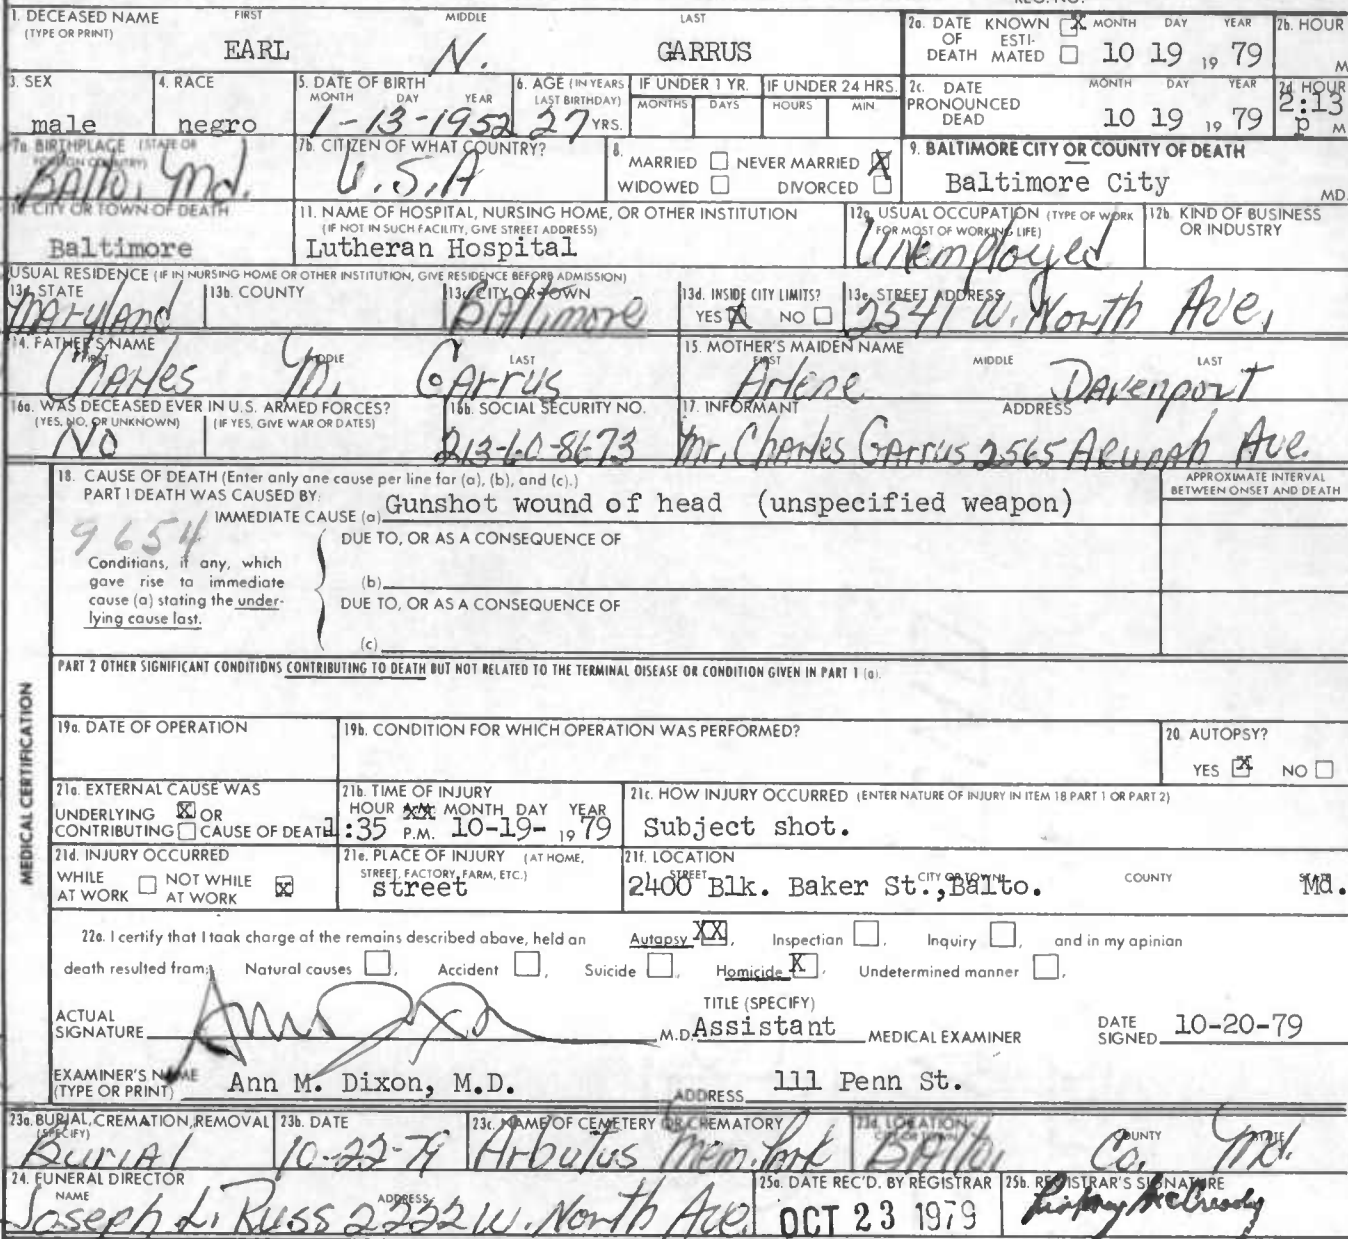 REG. NO.
1. DECEASED NAME FIRST MIDDLE LAST
(TYPE OR PRINT)
EARL N. GARRUS
2a. DATE KNOWN X MONTH DAY YEAR
OF ESTI-
DEATH MATED 10 19 19 79
2b. HOUR
M
3. SEX
male
4. RACE
negro
5. DATE OF BIRTH
MONTH DAY YEAR
1-13-1952
6. AGE (IN YEARS
LAST BIRTHDAY)
27 YRS.
IF UNDER 1 YR.
MONTHS DAYS
IF UNDER 24 HRS.
HOURS MIN
2c. DATE MONTH DAY YEAR
PRONOUNCED
DEAD 10 19 19 79
2d HOUR
2:13
p M
7a BIRTHPLACE (STATE OR
FOREIGN COUNTRY)
BAlto, Md.
7b. CITIZEN OF WHAT COUNTRY?
U.S.A
8.
MARRIED NEVER MARRIED X
WIDOWED DIVORCED
9. BALTIMORE CITY OR COUNTY OF DEATH
Baltimore City
MD.
10. CITY OR TOWN OF DEATH
Baltimore
11. NAME OF HOSPITAL, NURSING HOME, OR OTHER INSTITUTION
(IF NOT IN SUCH FACILITY, GIVE STREET ADDRESS)
Lutheran Hospital
12a. USUAL OCCUPATION (TYPE OF WORK
FOR MOST OF WORKING LIFE)
Unemployed
12b. KIND OF BUSINESS
OR INDUSTRY
USUAL RESIDENCE (IF IN NURSING HOME OR OTHER INSTITUTION, GIVE RESIDENCE BEFORE ADMISSION)
13a. STATE
Maryland
13b. COUNTY
13c. CITY OR TOWN
BAltimore
13d. INSIDE CITY LIMITS?
YES X NO
13e. STREET ADDRESS
2541 W. North Ave.
14. FATHER'S NAME
FIRST MIDDLE LAST
Charles M. GArrus
15. MOTHER'S MAIDEN NAME
FIRST MIDDLE LAST
Arlene Davenport
16a. WAS DECEASED EVER IN U.S. ARMED FORCES?
(YES, NO, OR UNKNOWN) (IF YES, GIVE WAR OR DATES)
No
16b. SOCIAL SECURITY NO.
213-60-8673
17. INFORMANT ADDRESS
Mr. Charles GArrus 2565 Arunah Ave.
18. CAUSE OF DEATH (Enter only one cause per line for (a), (b), and (c).)
PART I DEATH WAS CAUSED BY:
IMMEDIATE CAUSE (a) Gunshot wound of head (unspecified weapon)
APPROXIMATE INTERVAL
BETWEEN ONSET AND DEATH
9654
DUE TO, OR AS A CONSEQUENCE OF
Conditions, if any, which
gave rise to immediate
cause (a) stating the under-
lying cause last.
(b)
DUE TO, OR AS A CONSEQUENCE OF
(c)
PART 2 OTHER SIGNIFICANT CONDITIONS CONTRIBUTING TO DEATH BUT NOT RELATED TO THE TERMINAL DISEASE OR CONDITION GIVEN IN PART 1 (a).
MEDICAL CERTIFICATION
19a. DATE OF OPERATION
19b. CONDITION FOR WHICH OPERATION WAS PERFORMED?
20 AUTOPSY?
YES X NO
21a. EXTERNAL CAUSE WAS
UNDERLYING X OR
CONTRIBUTING CAUSE OF DEATH
21b. TIME OF INJURY
HOUR MONTH DAY YEAR
1:35 P.M. 10-19- 19 79
21c. HOW INJURY OCCURRED (ENTER NATURE OF INJURY IN ITEM 18 PART 1 OR PART 2)
Subject shot.
21d. INJURY OCCURRED
WHILE NOT WHILE
AT WORK AT WORK X
21e. PLACE OF INJURY (AT HOME,
STREET, FACTORY, FARM, ETC.)
street
21f. LOCATION
STREET CITY OR TOWN COUNTY STATE
2400 Blk. Baker St., Balto. Md.
22a. I certify that I took charge of the remains described above, held an Autopsy XX, Inspection , Inquiry , and in my opinion
death resulted from: Natural causes , Accident , Suicide , Homicide X, Undetermined manner .
ACTUAL
SIGNATURE
M.D.
TITLE (SPECIFY)
Assistant MEDICAL EXAMINER
DATE
SIGNED 10-20-79
EXAMINER'S NAME
(TYPE OR PRINT) Ann M. Dixon, M.D.
ADDRESS 111 Penn St.
23a. BURIAL, CREMATION, REMOVAL
(SPECIFY)
Burial
23b. DATE
10-22-79
23c. NAME OF CEMETERY OR CREMATORY
Arbutus Mem. Park
23d. LOCATION
CITY OR TOWN COUNTY STATE
BAlto. Co. Md.
24. FUNERAL DIRECTOR
NAME ADDRESS
Joseph L. Russ 2232 W. North Ave
25a. DATE REC'D. BY REGISTRAR
OCT 23 1979
25b. REGISTRAR'S SIGNATURE
McCready